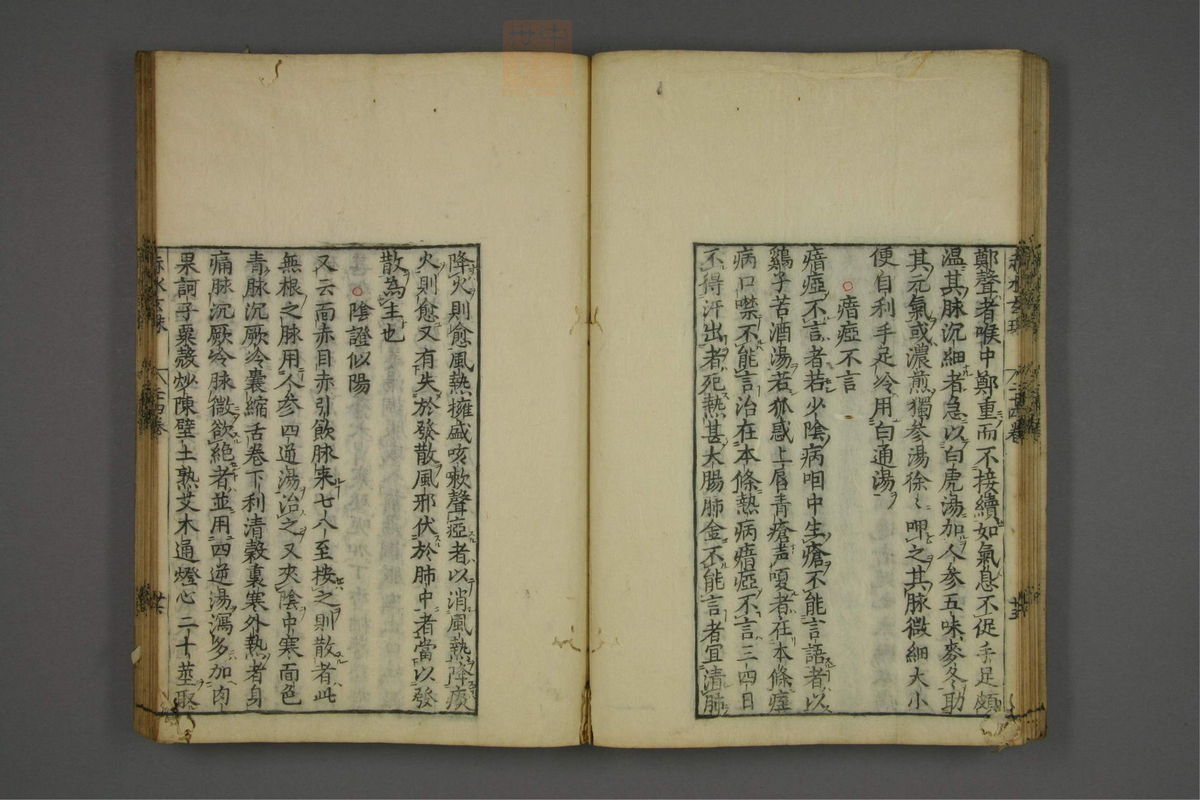 鄭聲者喉中鄭重而不接續如氣息不促手足頗
温其脉沉細者急以白虎湯加人参五味麥冬助
其元氣或濃煎獨參湯徐〻呷之其脉微細大小
便自利手足冷用白通湯
○瘖瘂不言
瘖瘂不言者若少陰病咽中生瘡不能言語者以
鷄子苦酒湯若狐惑上唇青瘡声嗄者在本條痙
病口噤不能言治在本條熱病瘖瘂不言三四日
不得汗出者死熱甚大腸肺金不能言者宜清肺
降火則愈風熱擁盛咳嗽聲瘂者以消風熱降痰
火則愈又有失於發散風邪伏於肺中者當以發
散為主也
○陰證似陽
又云面赤目赤引飲脉来七八至按之則散者此
無根之脉用人参四逆湯治之又夾陰中寒面色
青脉沉厥冷囊縮舌卷下利清穀裏寒外熱者身
痛脉沉厥冷脉微欲絶者並用四逆湯瀉多加肉
果訶子粟殻炒陳壁土熟艾木通燈心二十莖聚